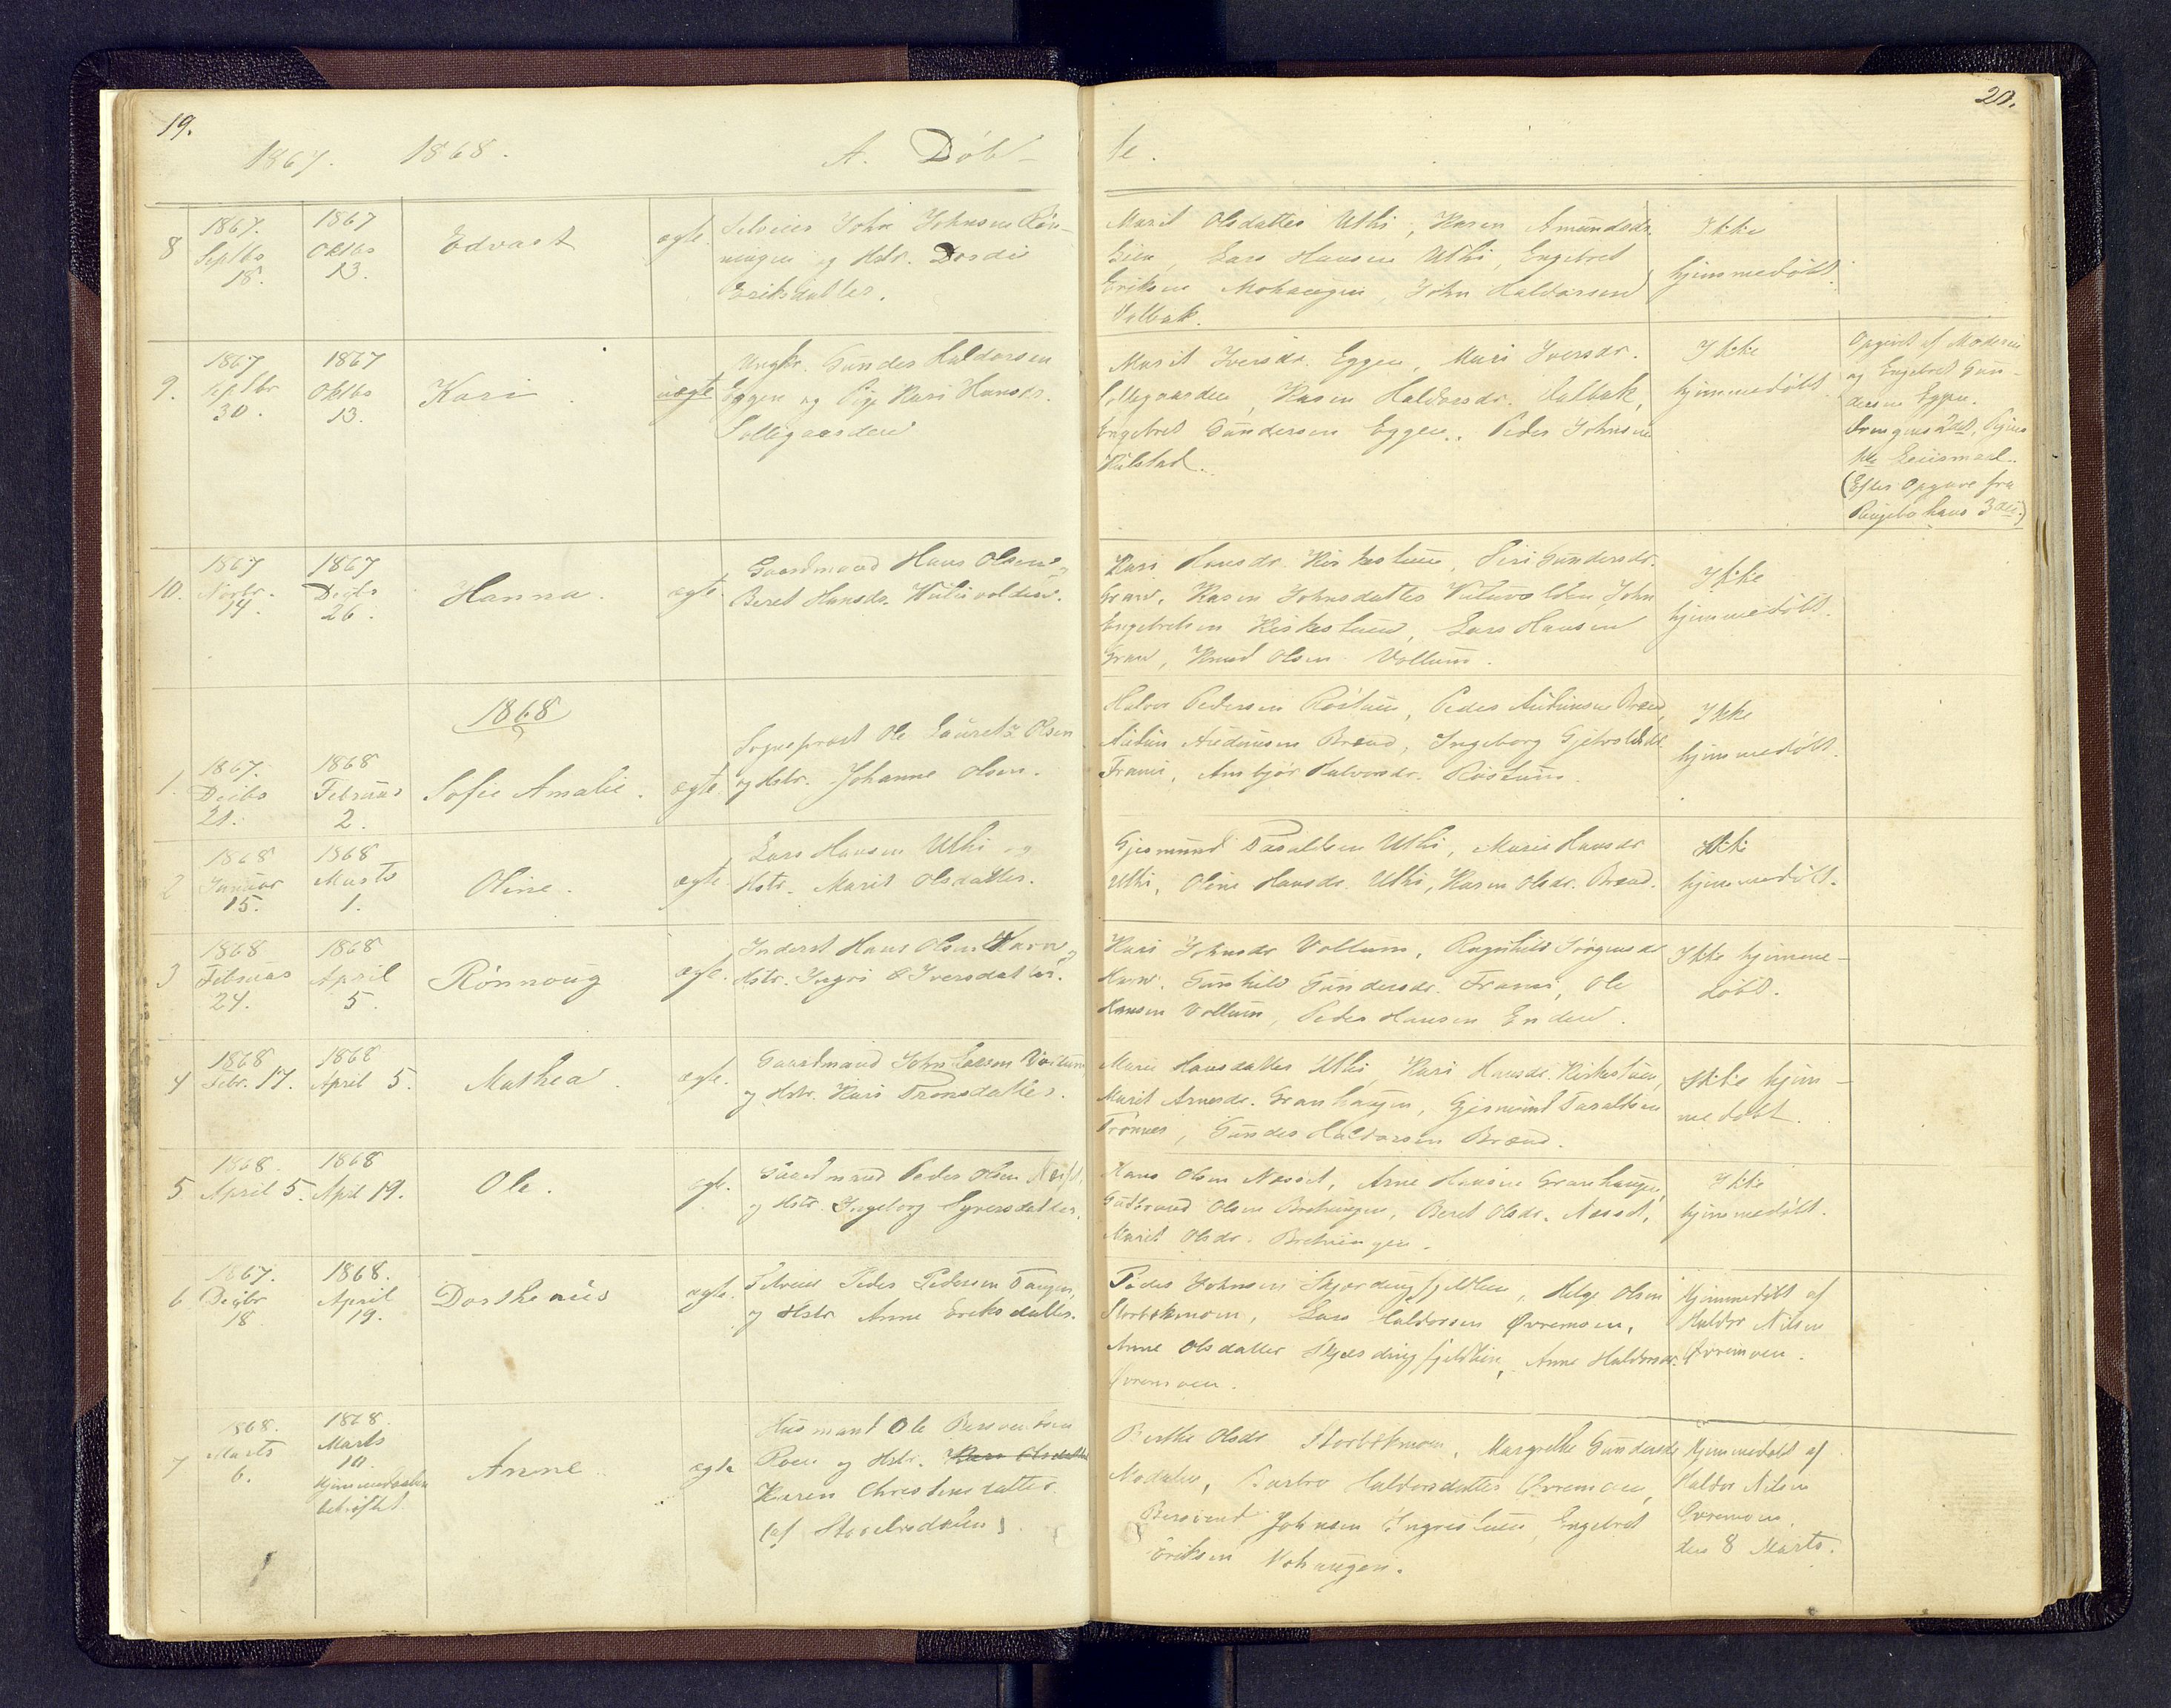 19.
1867. 1868. A. Døb-
8
1867.
Septbr
18.
1867
Oktbr
13.
Edvart
ægte.
Selveier John Johnsen Røn-
ningen og Hstr. Dordi
Eriksdatter.
9.
1867
Septbr
30.
1867
Oktbr
13.
Kari
uægte
Ungkr. Gunder Haldorsen
Eggen og Pige Kari Hansdr.
Solligaarden
10.
1867
Novbr.
14.
1867
Decbr
26.
Hanna.
ægte.
Gaardmand Hans Olsen og
Beret Hansdr.
1868
1.
1867.
Decbr
21.
1868
Februar
2.
Sofie Amalie.
ægte.
Sogneprest Ole Lauretz Olsen
og Hstr. Johanne Olsen.
2
1868
Januar
15.
1868
Marts
1.
Oline.
ægte.
Lars Hansen Uthi og
Hstr. Marit Olsdatter.
3
1868
Februar
24.
1868
April
5.
Rønnoug
ægte.
Inderst Hans Olsen
Hstr. Ingri Iversdatter.
4
1868
Febr. 17.
1868
April 5.
Mathea.
ægte.
Gaardmand John Larsen
og Hstr. Kari Tronsdatter.
5
1868.
April 5.
1868
April 19.
Ole.
ægte.
Gaardmand Peder Olsen
og Hstr. Ingeborg Syversdatter.
6
1867.
Decbr
18
1868.
April
19.
Dortheaus
ægte.
Selveier Peder Pedersen Tangen,
og Hstr. Anne Eriksdatter.
7
1868.
Marts
6.
1868.
Marts
10.
Hjemmedaaben
bekræftet.
Anne.
ægte
Husmand Ole Bersventsen
Roen og Hstr. Kari Olsdatter
Karen Christensdatter.
(af Storelvedalen)
20.
te.
Marit Olsdatter Uthi, Karen Amundsdr.
Lien, Lars Hansen Uthi, Engebret
Eriksen Mohaugen, John Haldorsen
Valbak.
Ikke
hjemmedøbt.
Marit Iversdr. Eggen, Mari Iversdr.
Sollegaarden, Karen Haldorsdr. Valbak,
Engebret Gundersen Eggen, Peder Johnsen
Kulstad.
Ikke
hjemmedøbt.
Opgivet af Moderen
og Engebret Gun-
dersen Eggen.
Drengens 2det, Pigens
1ste Leiermaal.
(Efter Opgave fra
Ringebo hans 3die.)
Kari Hansdr. Kirkestuen, Siri Gundersdr.
Karen Johnsdatter John
Engebretsen Kirkestuen, Lars Hansen
Knud Olsen Vollum.
Ikke
hjemmedøbt.
Halvor Pedersen Røstuen, Peder Audunsen Brænd,
Audun Audunsen Brænd, Ingeborg
Frami, Halvorsdr. Røstuen
Ikke
hjemmedøbt.
Gjermund Taraldsen Uthi, Marie Hansdr
Uthi, Oline Hansdr. Uthi, Karen Olsdr. Brænd.
Ikke
hjemmedøbt.
Kari Johnsdr Vollum, Ragnhild Jørgensdr
Gunhild Gundersdr. Frami, Ole
Hansen Vollum, Peder Hansen Enden.
Ikke hjemme-
døbt.
Marie Hansdatter Uthi, Kari Hansdr. Kirkestuen,
Marit Arnesdr. Granhaugen, Gjermund Taraldsen
Trønnes, Gunder Haldorsen Brænd.
Ikke hjem-
medøbt.
Hans Olsen Næsset, Arne Hansen Granhaugen,
Gudbrand Olsen Bretningen, Beret Olsdr. Næsset,
Marit Olsdr. Bretningen.
Ikke
hjemmedøbt.
Peder Johnsen Skjærdingfjeldlien, Helge Olsen
Storbekmoen, Lars Haldorsen Øvremoen,
Anne Olsdatter Skjærdingfjeldlien, Anne Haldorsdr.
Øvremoen.
Hjemmedøbt af
Haldor Nilsen
Øvremoen.
Berthe Olsdr Storbekmoen, Margrethe Gundersdr
Modalen, Barbro Haldorsdatter Øvremoen,
Bersvend Johnsen Engebret
Eriksen Mohaugen.
Hjemmedøbt af
Haldor Nilsen
Øvremoen,
den 8 Marts.